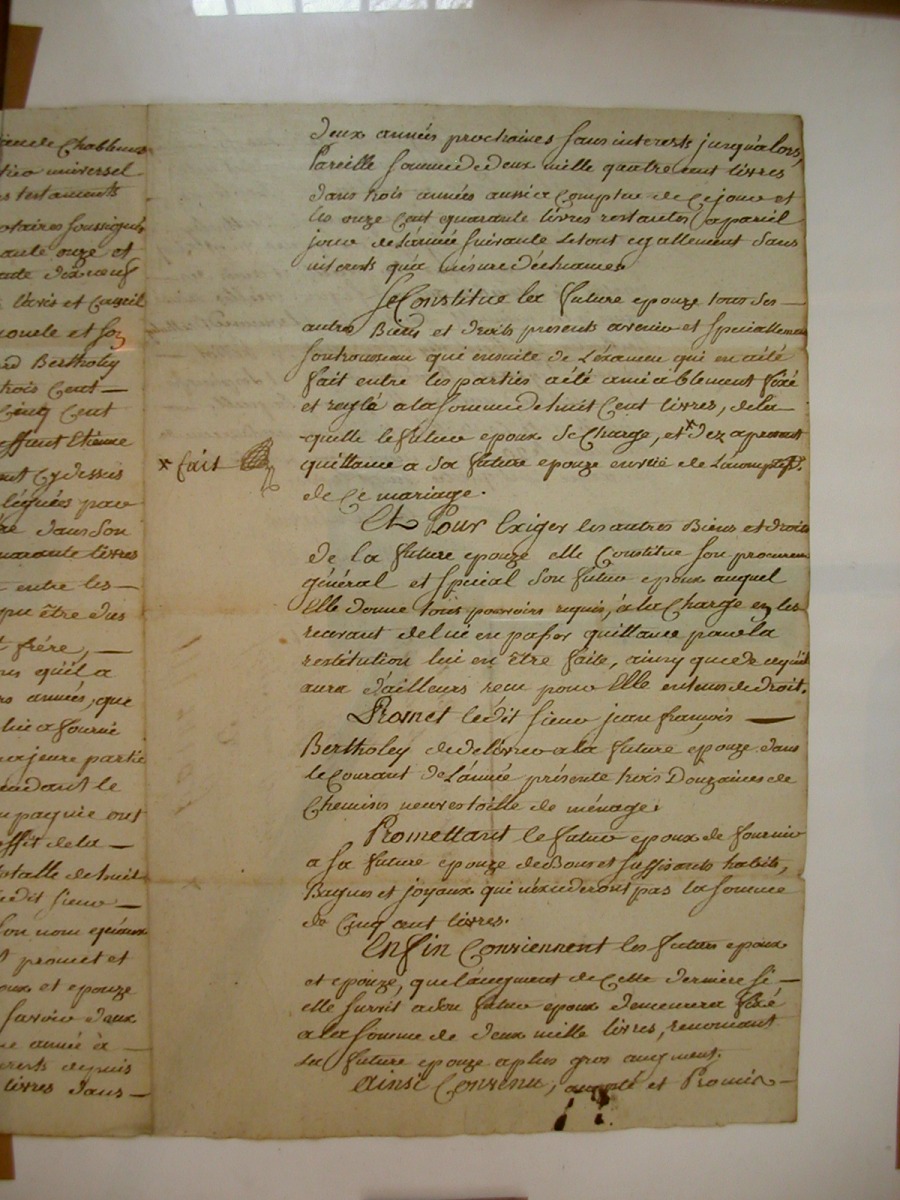 ieu de Chablens
tieu universel
es testaments
otaires soussignés
ante onze et
ade dixneuf
l'avis et Conseil
oncle et son
Bertholey
trois Cent —
Cinq Cent
deffunt Etienne
ent Cy dessus
légués par
re dans son
quarante livres
entre les —
pu être dus
t frére, —
ns quil a
rs années, que
lui a fourni
majeure partie
endant le
mpagnie ont
effit de la —
totalle de huit
edit sieur —
son nom
promet et
oux et epouze
deux
e année à —
erets depuis
livres dans —
deux années prochaines sans interets jusqu'alors,
Pareille somme de deux mille quatre cent livres
dans trois années aussi a Compter de Ce jour et
les onze Cent quarante livres restantes a pareil
jour de L'année suivante Le tout egallement sans
interets qu'a mesure d'échéances
Se Constitue la future epouze tous ses —
autres Biens et droits presents avenir et specialement
son trousseau qui ensuite de L'éxamen qui en a été
fait entre les parties a été amiablement fixé
et reglé a la somme de huit Cent livres, de la
quelle le futur epoux Se Charge, et x dez a present
x fait
quittance a Sa future epouze
de Ce mariage.
Et Pour Exiger les autres Biens et droits
de la future epouze elle Constitue son procureur
général et spécial son futur epoux auquel
Elle donne tous pouvoirs requis, à la Charge en les
recevant de lui en passer quittance pour la
restitution lui en être faite, ainsy que de ce qu'il
aura d'ailleurs recu pour Elle en tems de droit.
Promet ledit sieur jean françois —
Bertholey de délivrer a la future epouze dans
le Courant de L'année présente trois Douzaines de
Chemises neuves toille de ménage.
Promettant le futur epoux de fournir
a sa future epouze de Bons et suffisants habits,
Bagues et joyaux qui n'éxcéderont pas la somme
de Cinq cent livres.
Enfin Conviennent les futurs epoux
et epouze, que l'augment de Cette derniere si —
elle survit a son futur epoux demeurera fixé
a la somme de deux mille livres, renoncant
la future epouze a plus gros augment.
Ainsi Convenu, accepté et Promis —